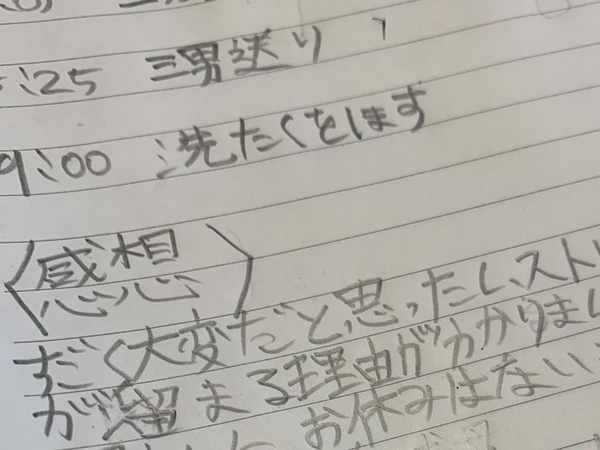 :25 三男送り
9:00 洗たくをします
〈感想〉
だく大変だと思ったし、スト
が溜まる理由がわかりまし
お休みはない